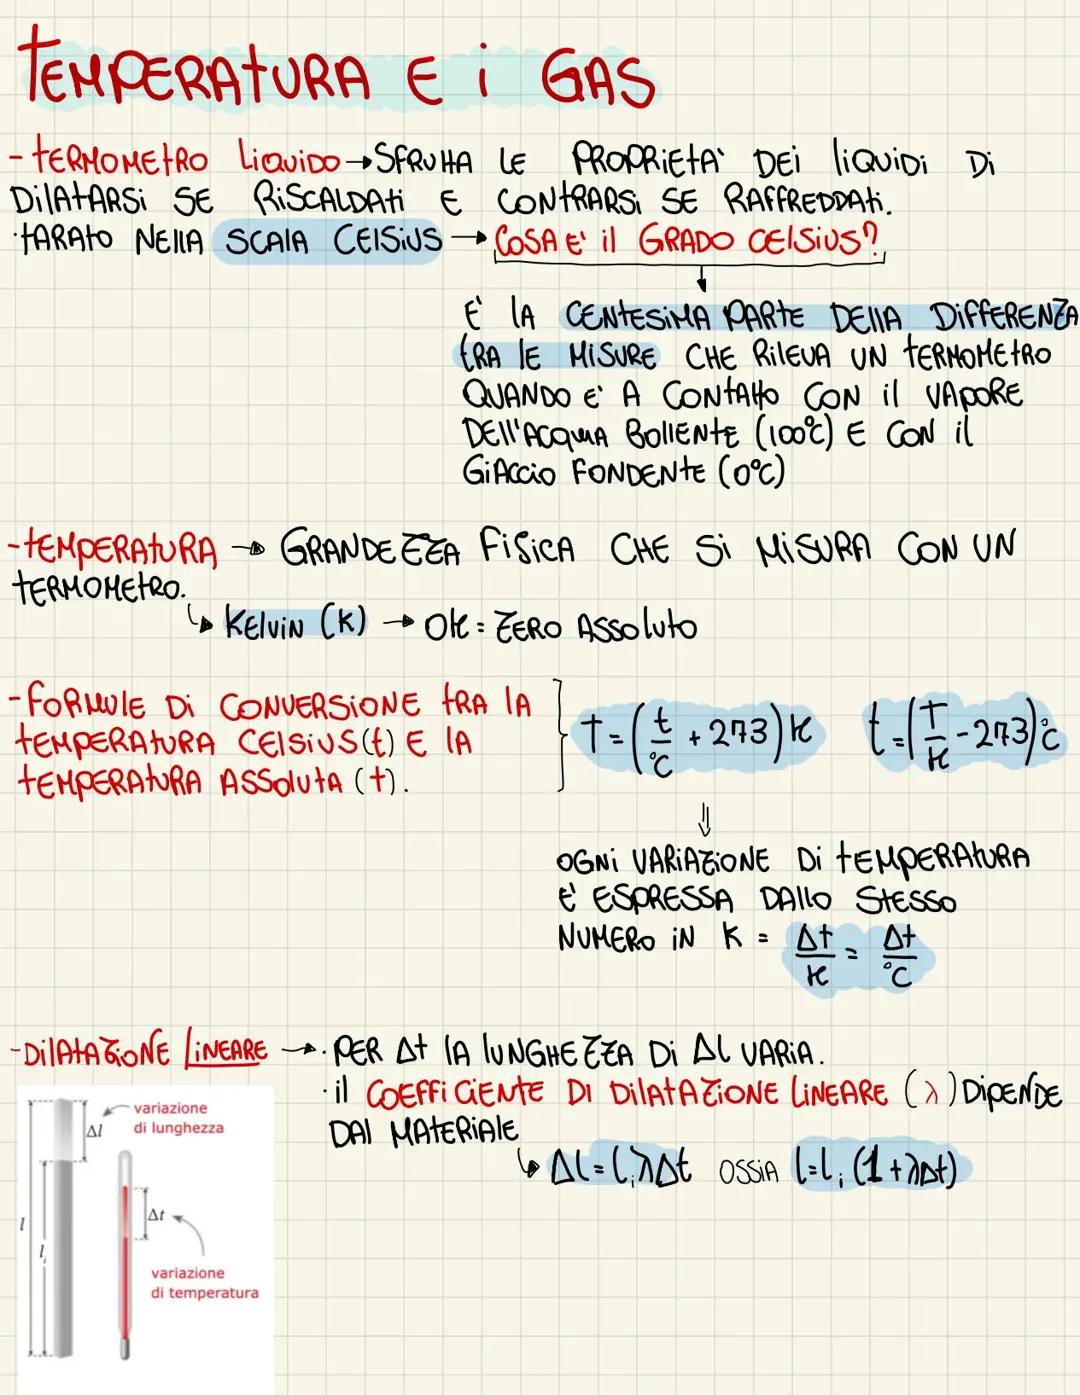 TEMPERATURA E i GAS
- TERMOMETRO LIQUIDO → SFRUTTA LE PROPRIETA' DEI LIQUIDI DI
DILATARSI SE RISCALDATI E CONTRARSI SE RAFFREDDATI.
· TARATO NELLA SCALA CELSIUS → COSA E' IL GRADO CELSIUS?
E' LA CENTESIMA PARTE DELLA DIFFERENZA
TRA LE MISURE CHE RILEVA UN TERMOMETRO
QUANDO E' A CONTATTO CON IL VAPORE
DELL'ACQUA BOLLENTE (100°C) E CON IL
GIACCIO FONDENTE (0°C)
- TEMPERATURA → GRANDEZZA FISICA CHE SI MISURA CON UN
TERMOMETRO.
↳ KELVIN (K) → 0K = ZERO ASSOLUTO
- FORMULE DI CONVERSIONE TRA LA
TEMPERATURA CELSIUS (t) E LA
TEMPERATURA ASSOLUTA (T).
T = (t/°C + 273) K t = (T/K - 273) °C
⇓
OGNI VARIAZIONE DI TEMPERATURA
E' ESPRESSA DALLO STESSO
NUMERO IN K = ΔT/K = Δt/°C
- DILATAZIONE LINEARE → · PER Δt LA LUNGHEZZA DI Δl VARIA.
· IL COEFFICIENTE DI DILATAZIONE LINEARE (λ) DIPENDE
DAL MATERIALE
↳ Δl = lᵢλΔt OSSIA l = lᵢ (1 + λΔt)
variazione
di lunghezza
Δl
Δt
l
lᵢ
variazione
di temperatura